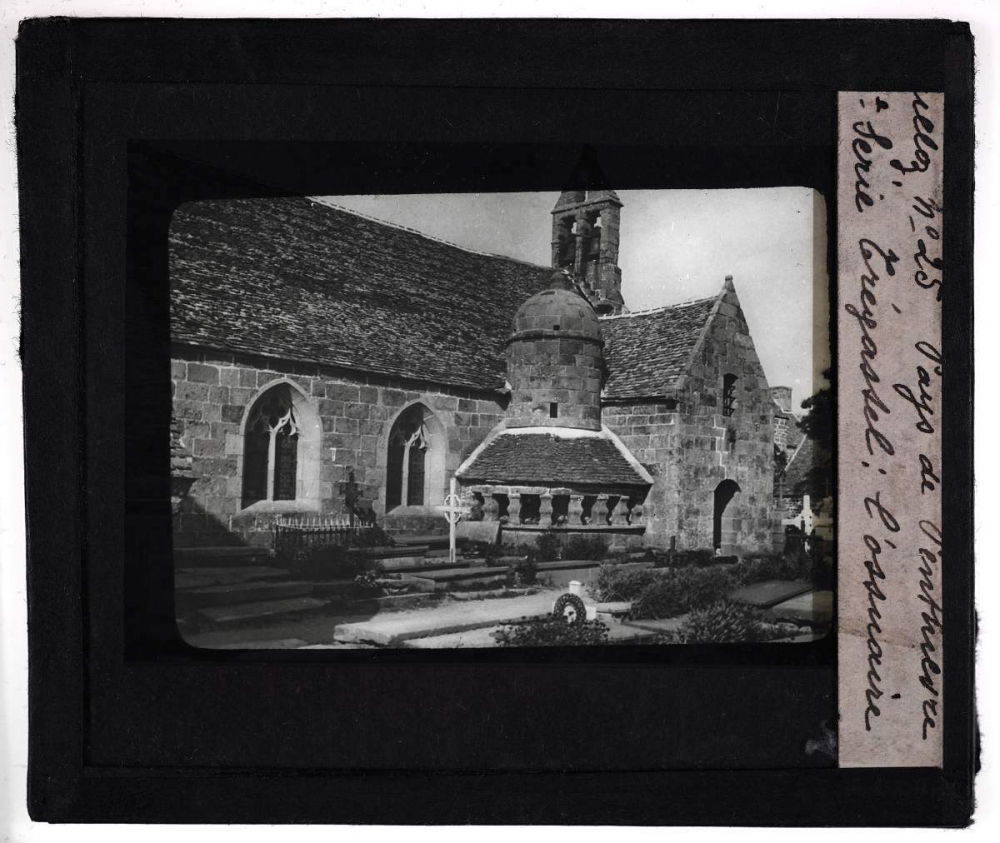 N° 25 Pays de Penthièvre
Série Trégastel: l'ossuaire